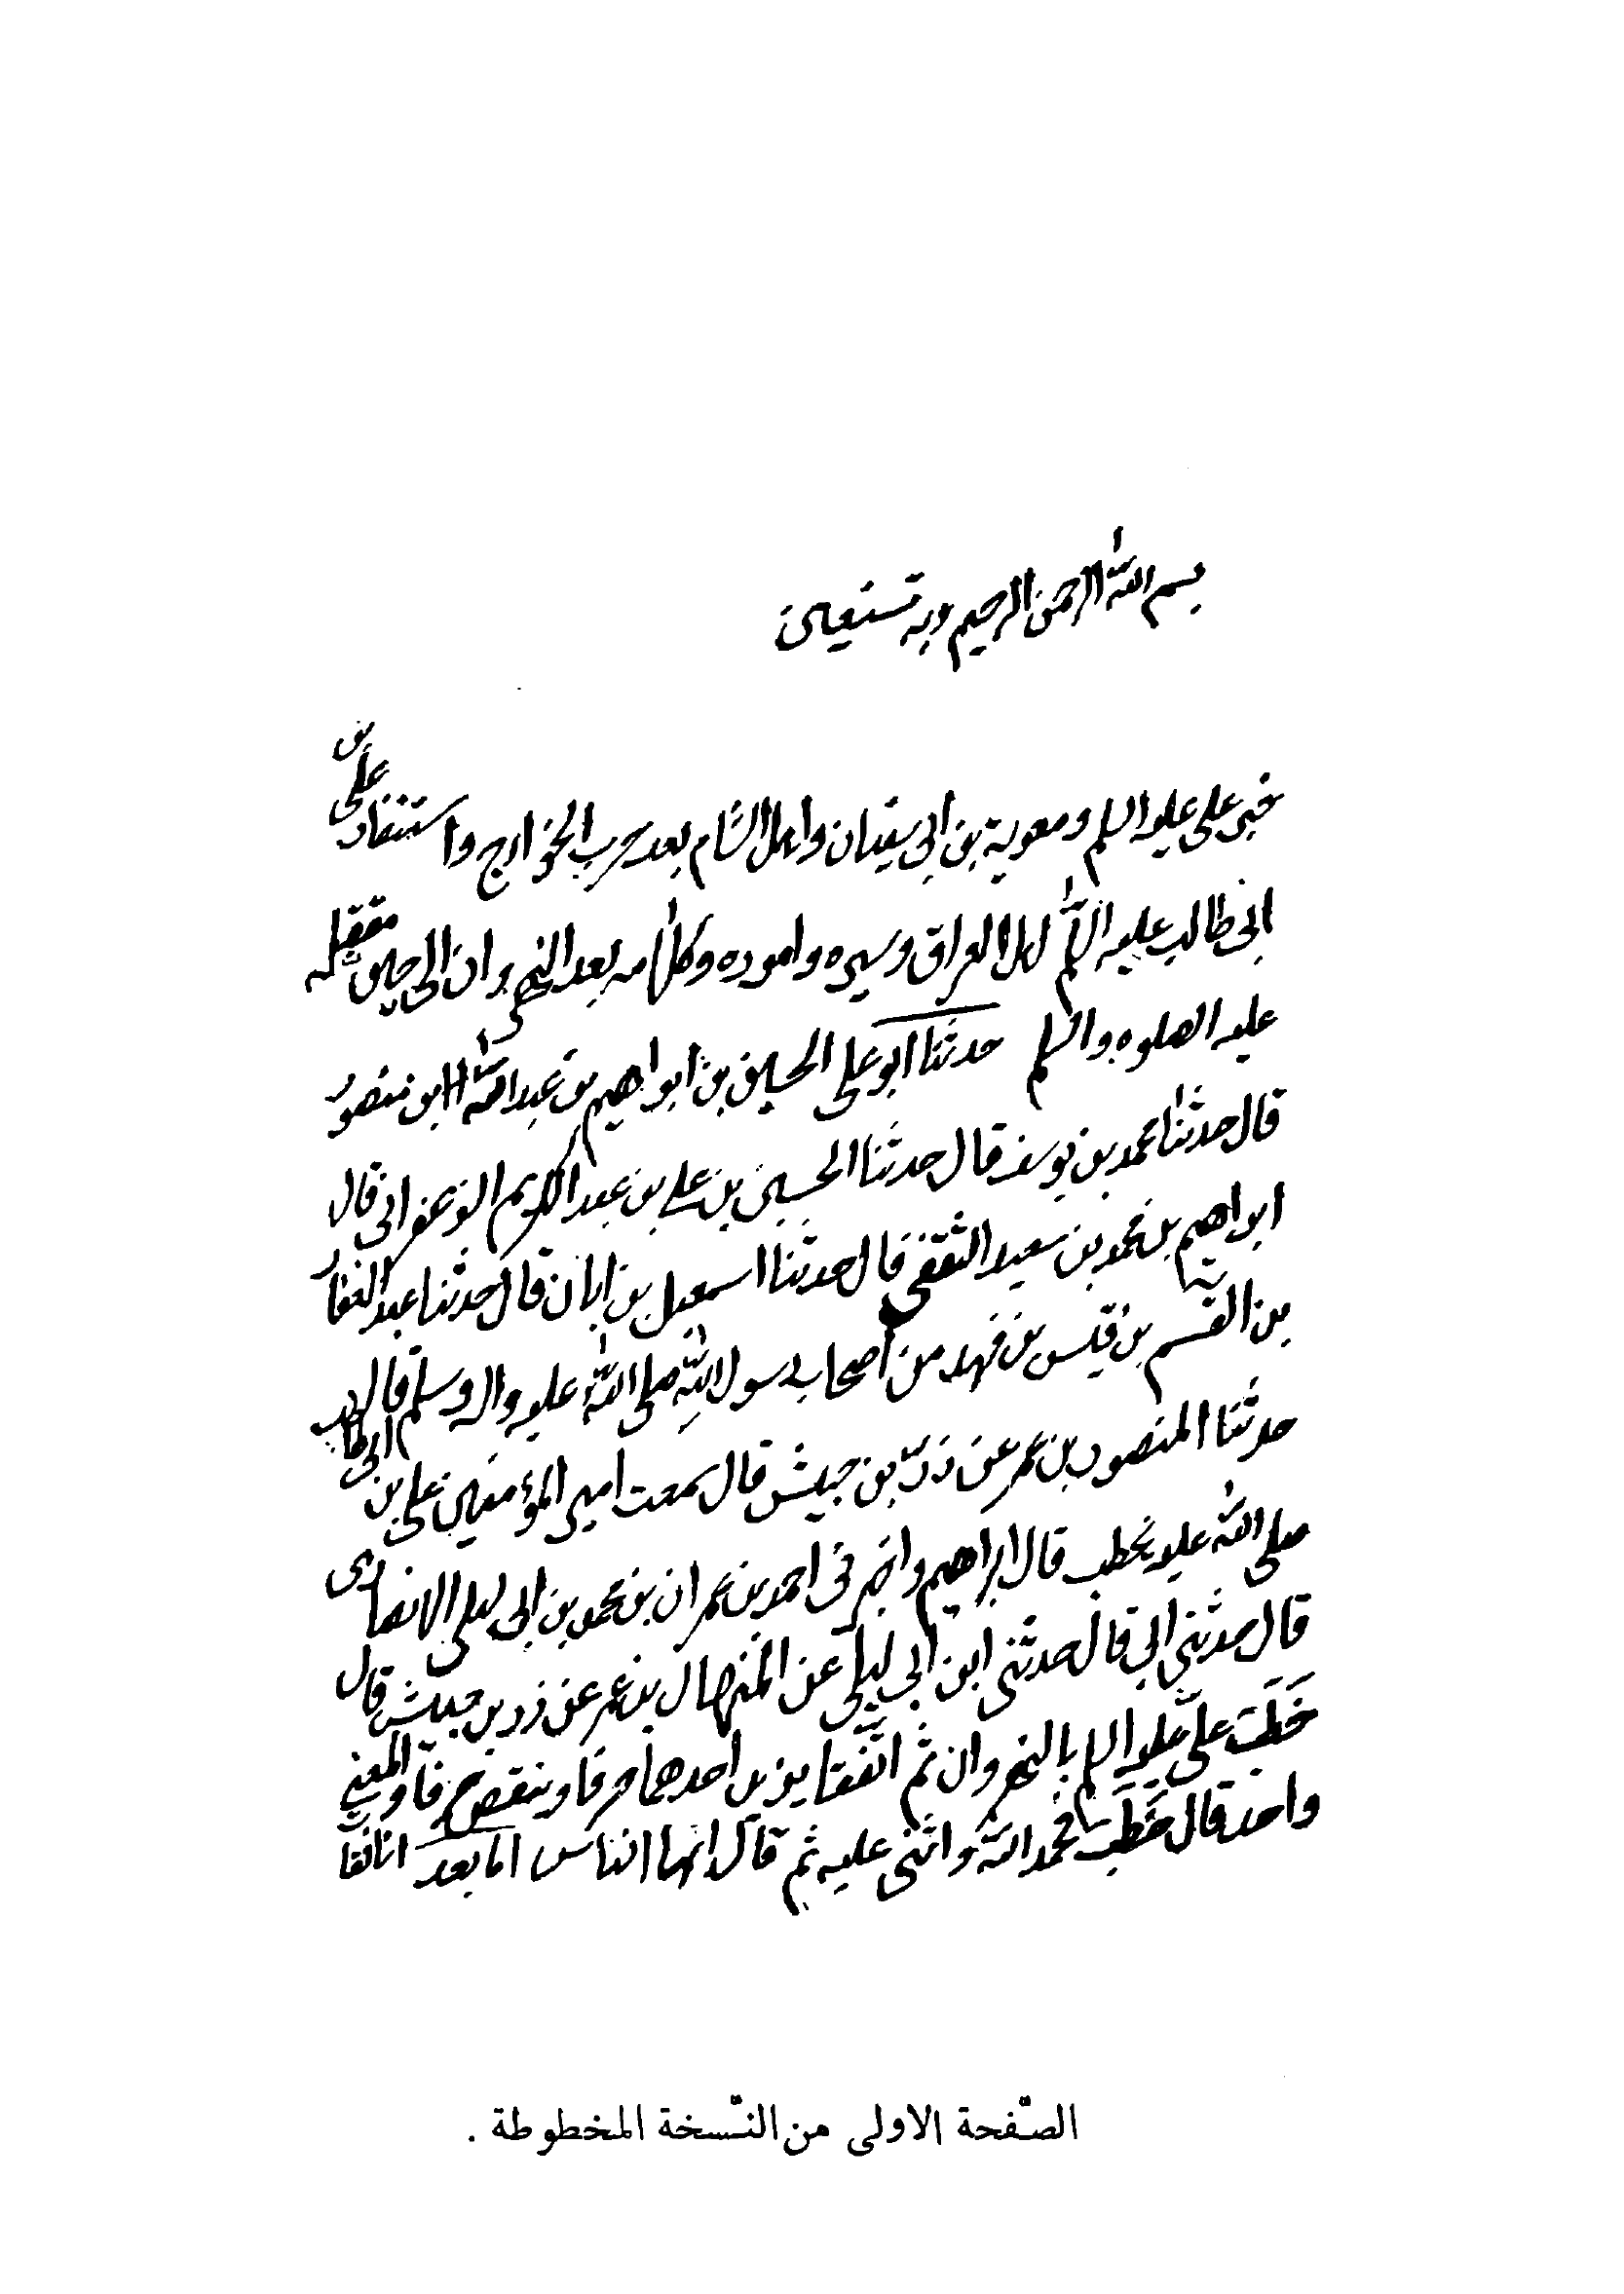 بسم الله الرحمن الرحيم وبه نستعين
خبر علي عليه السلم ومعوية بن ابي سفيان واهل الشام بعد حرب الخوارج واستنفار علي بن
ابي طالب عليه السلم اهل العراق وسيره واموره وكلامه بعد النهروان الى حين مقتله
عليه الصلوه والسلم حدثنا ابو علي الحسين بن ابراهيم بن عبد الله ابن منصور
قال حدثنا محمد بن يوسف قال حدثنا الحسن بن علي بن عبد الكريم الزعفراني قال
ابراهيم بن محمد بن سعيد الثقفي قال حدثنا اسمعيل بن ابان قال حدثنا عبد الغفار
بن القسم بن قيس بن فهد من اصحاب رسول الله صلى الله عليه واله وسلم قال
حدثنا المنصور بن عمر عن زرّ بن حبيش قال سمعت امير المؤمنين علي بن ابي طالب
صلى الله عليه يخطب قال ابراهيم واخبرني احمد بن عمران بن محمد بن ابي ليلى الانصارى
قال حدثني ابي قال حدثني ابن ابي ليلى عن المنهال بن عمر عن زر بن حبيش قال
خَطَبَ علي عليه السلم بالنهروان ثم اتّفقا يزيد احدهما حرفا وينقص حرفا والمعنى
واحد قال خَطَبَ فحمد الله واثنى عليه ثم قال ايها الناس اما بعد انا فقا
الصّفحة الاولى من النّسخة المخطوطة .